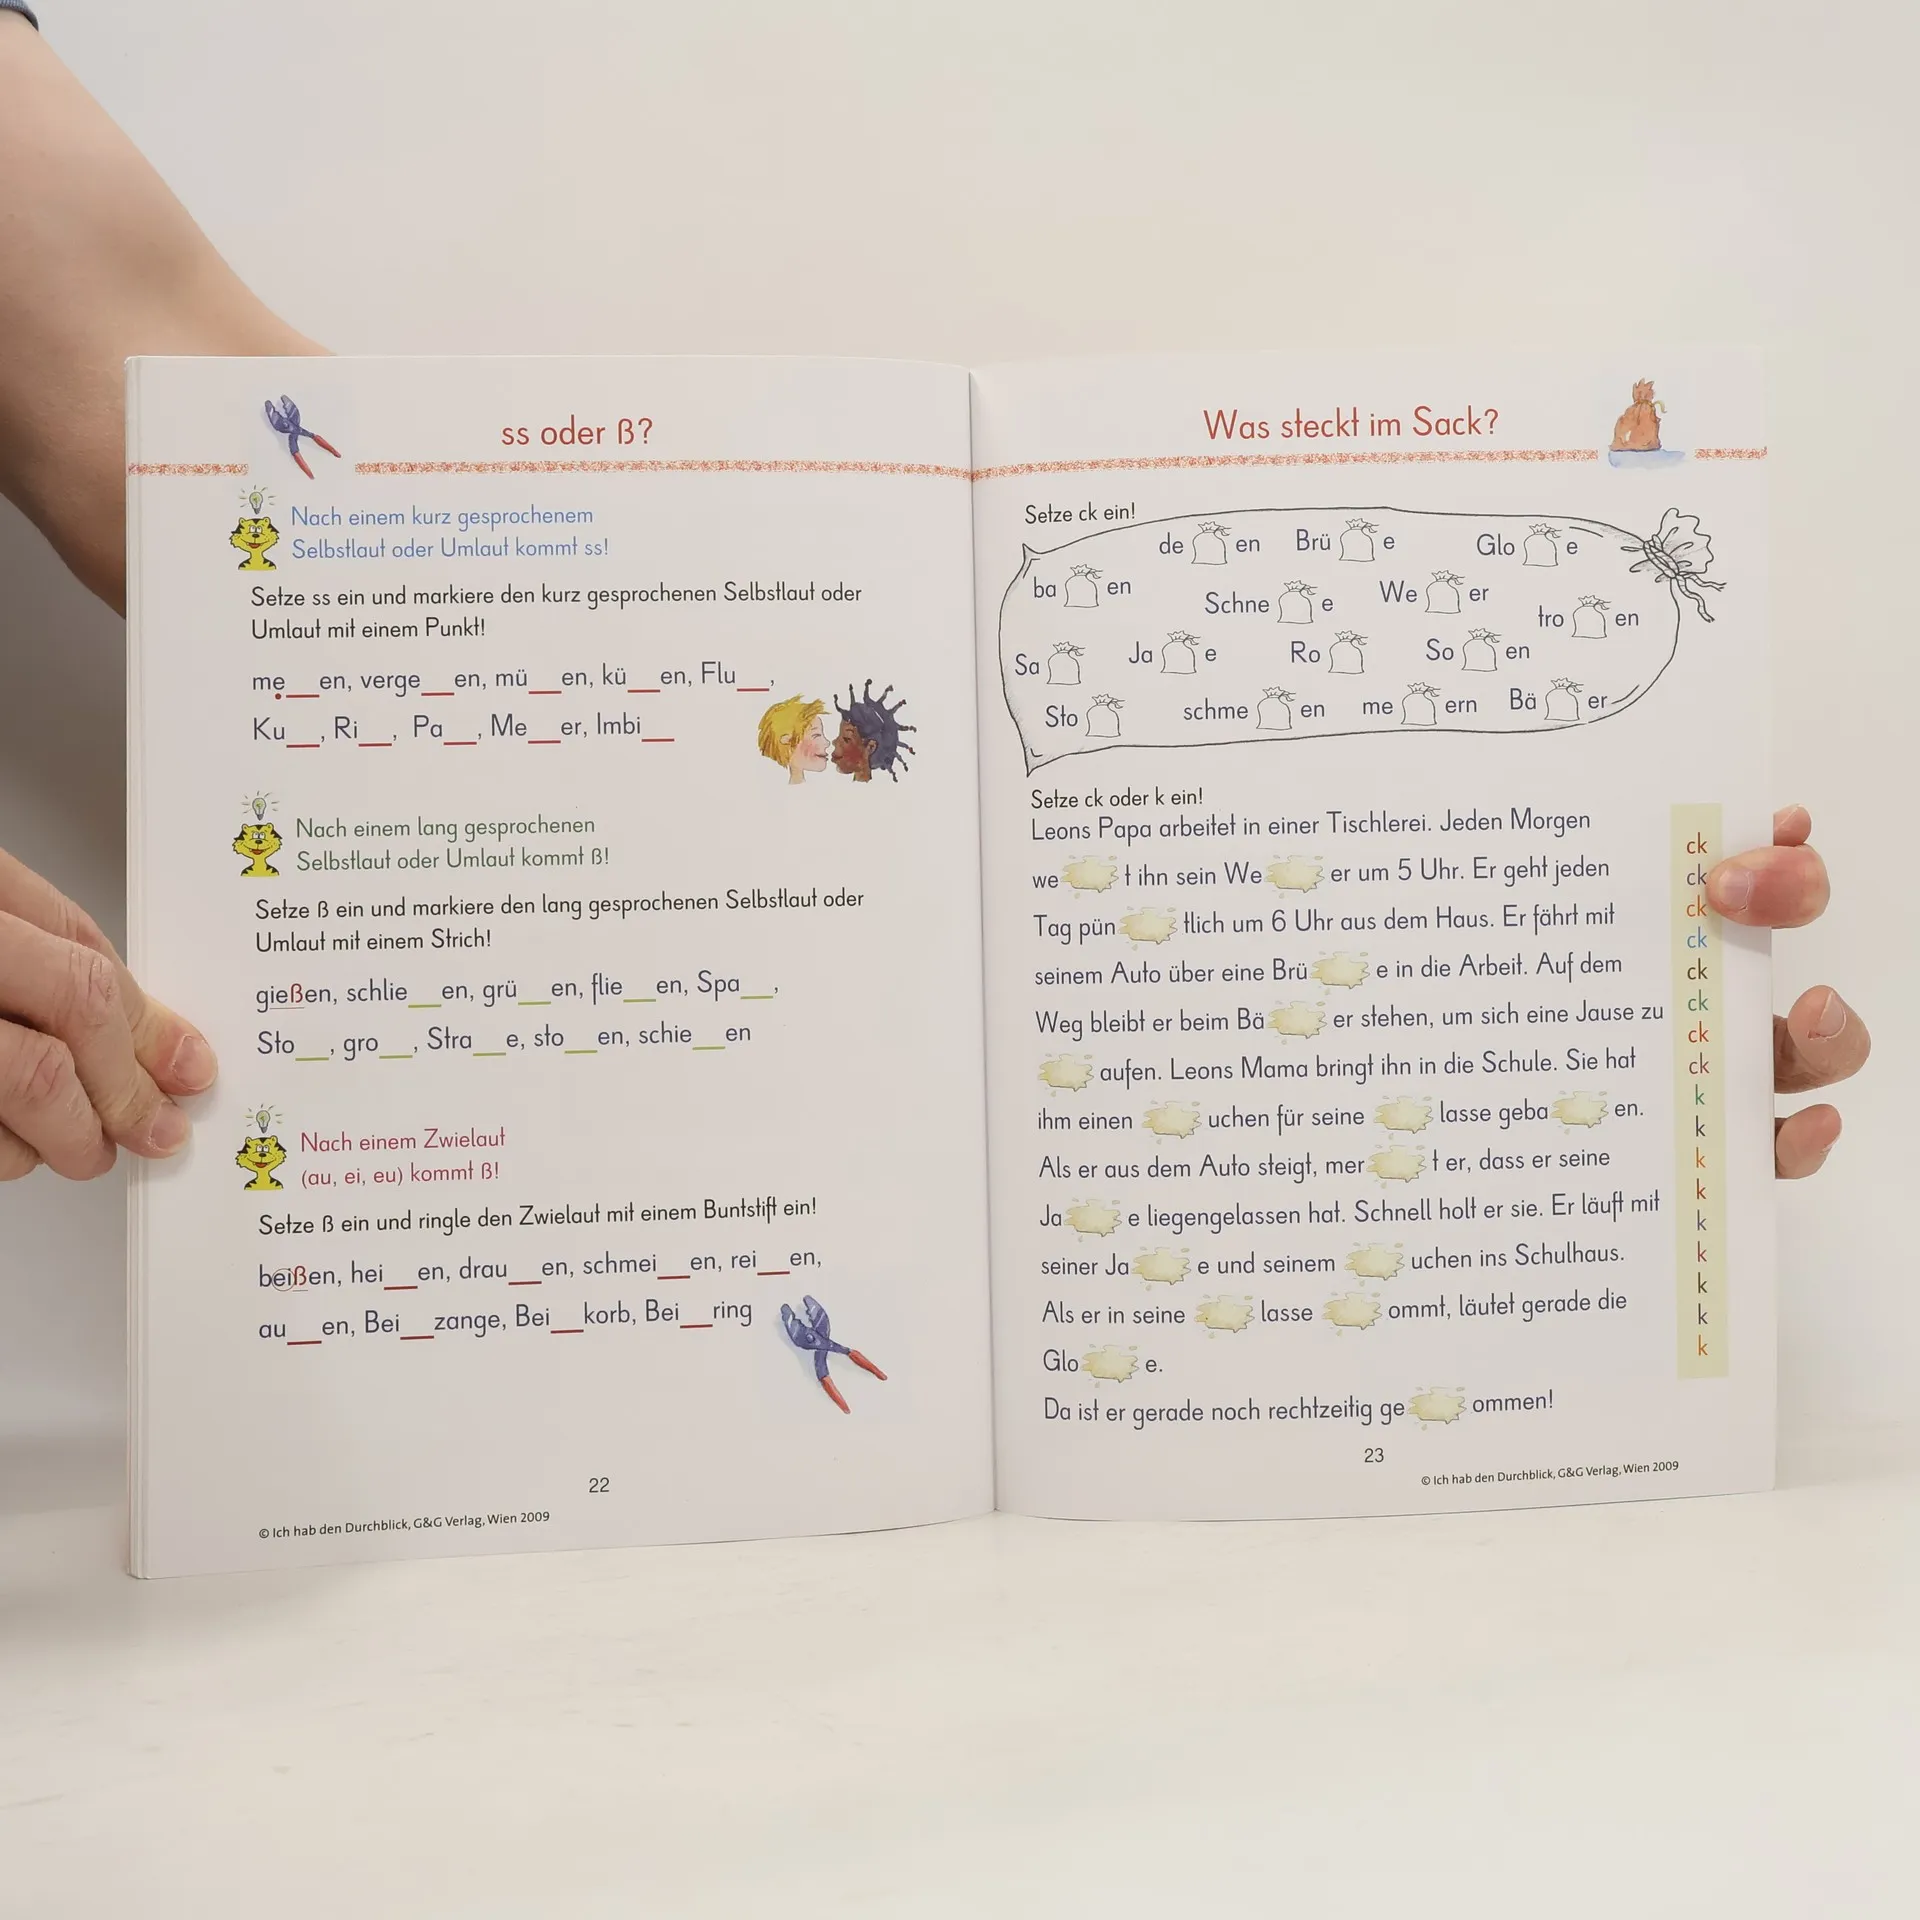 ss oder ß?
Nach einem kurz gesprochenem
Selbstlaut oder Umlaut kommt ss!
Setze ss ein und markiere den kurz gesprochenen Selbstlaut oder
Umlaut mit einem Punkt!
me__en, verge__en, mü__en, kü__en, Flu__,
Ku__, Ri__, Pa__, Me__er, Imbi__
Nach einem lang gesprochenen
Selbstlaut oder Umlaut kommt ß!
Setze ß ein und markiere den lang gesprochenen Selbstlaut oder
Umlaut mit einem Strich!
gießen, schlie__en, grü__en, flie__en, Spa__,
Sto__, gro__, Stra__e, sto__en, schie__en
Nach einem Zwielaut
(au, ei, eu) kommt ß!
Setze ß ein und ringle den Zwielaut mit einem Buntstift ein!
beißen, hei__en, drau__en, schmei__en, rei__en,
au__en, Bei__zange, Bei__korb, Bei__ring
22
© Ich hab den Durchblick, G&G Verlag, Wien 2009
Was steckt im Sack?
Setze ck ein!
de en Brü e Glo e
ba en Schne e We er tro en
Sa Ja e Ro So en
Sto schme en me ern Bä er
Setze ck oder k ein!
Leons Papa arbeitet in einer Tischlerei. Jeden Morgen
we t ihn sein We er um 5 Uhr. Er geht jeden
Tag pün tlich um 6 Uhr aus dem Haus. Er fährt mit
seinem Auto über eine Brü e in die Arbeit. Auf dem
Weg bleibt er beim Bä er stehen, um sich eine Jause zu
aufen. Leons Mama bringt ihn in die Schule. Sie hat
ihm einen uchen für seine lasse geba en.
Als er aus dem Auto steigt, mer t er, dass er seine
Ja e liegengelassen hat. Schnell holt er sie. Er läuft mit
seiner Ja e und seinem uchen ins Schulhaus.
Als er in seine lasse ommt, läutet gerade die
Glo e.
Da ist er gerade noch rechtzeitig ge ommen!
ck
ck
ck
ck
ck
ck
ck
ck
k
k
k
k
k
k
k
k
k
23
© Ich hab den Durchblick, G&G Verlag, Wien 2009